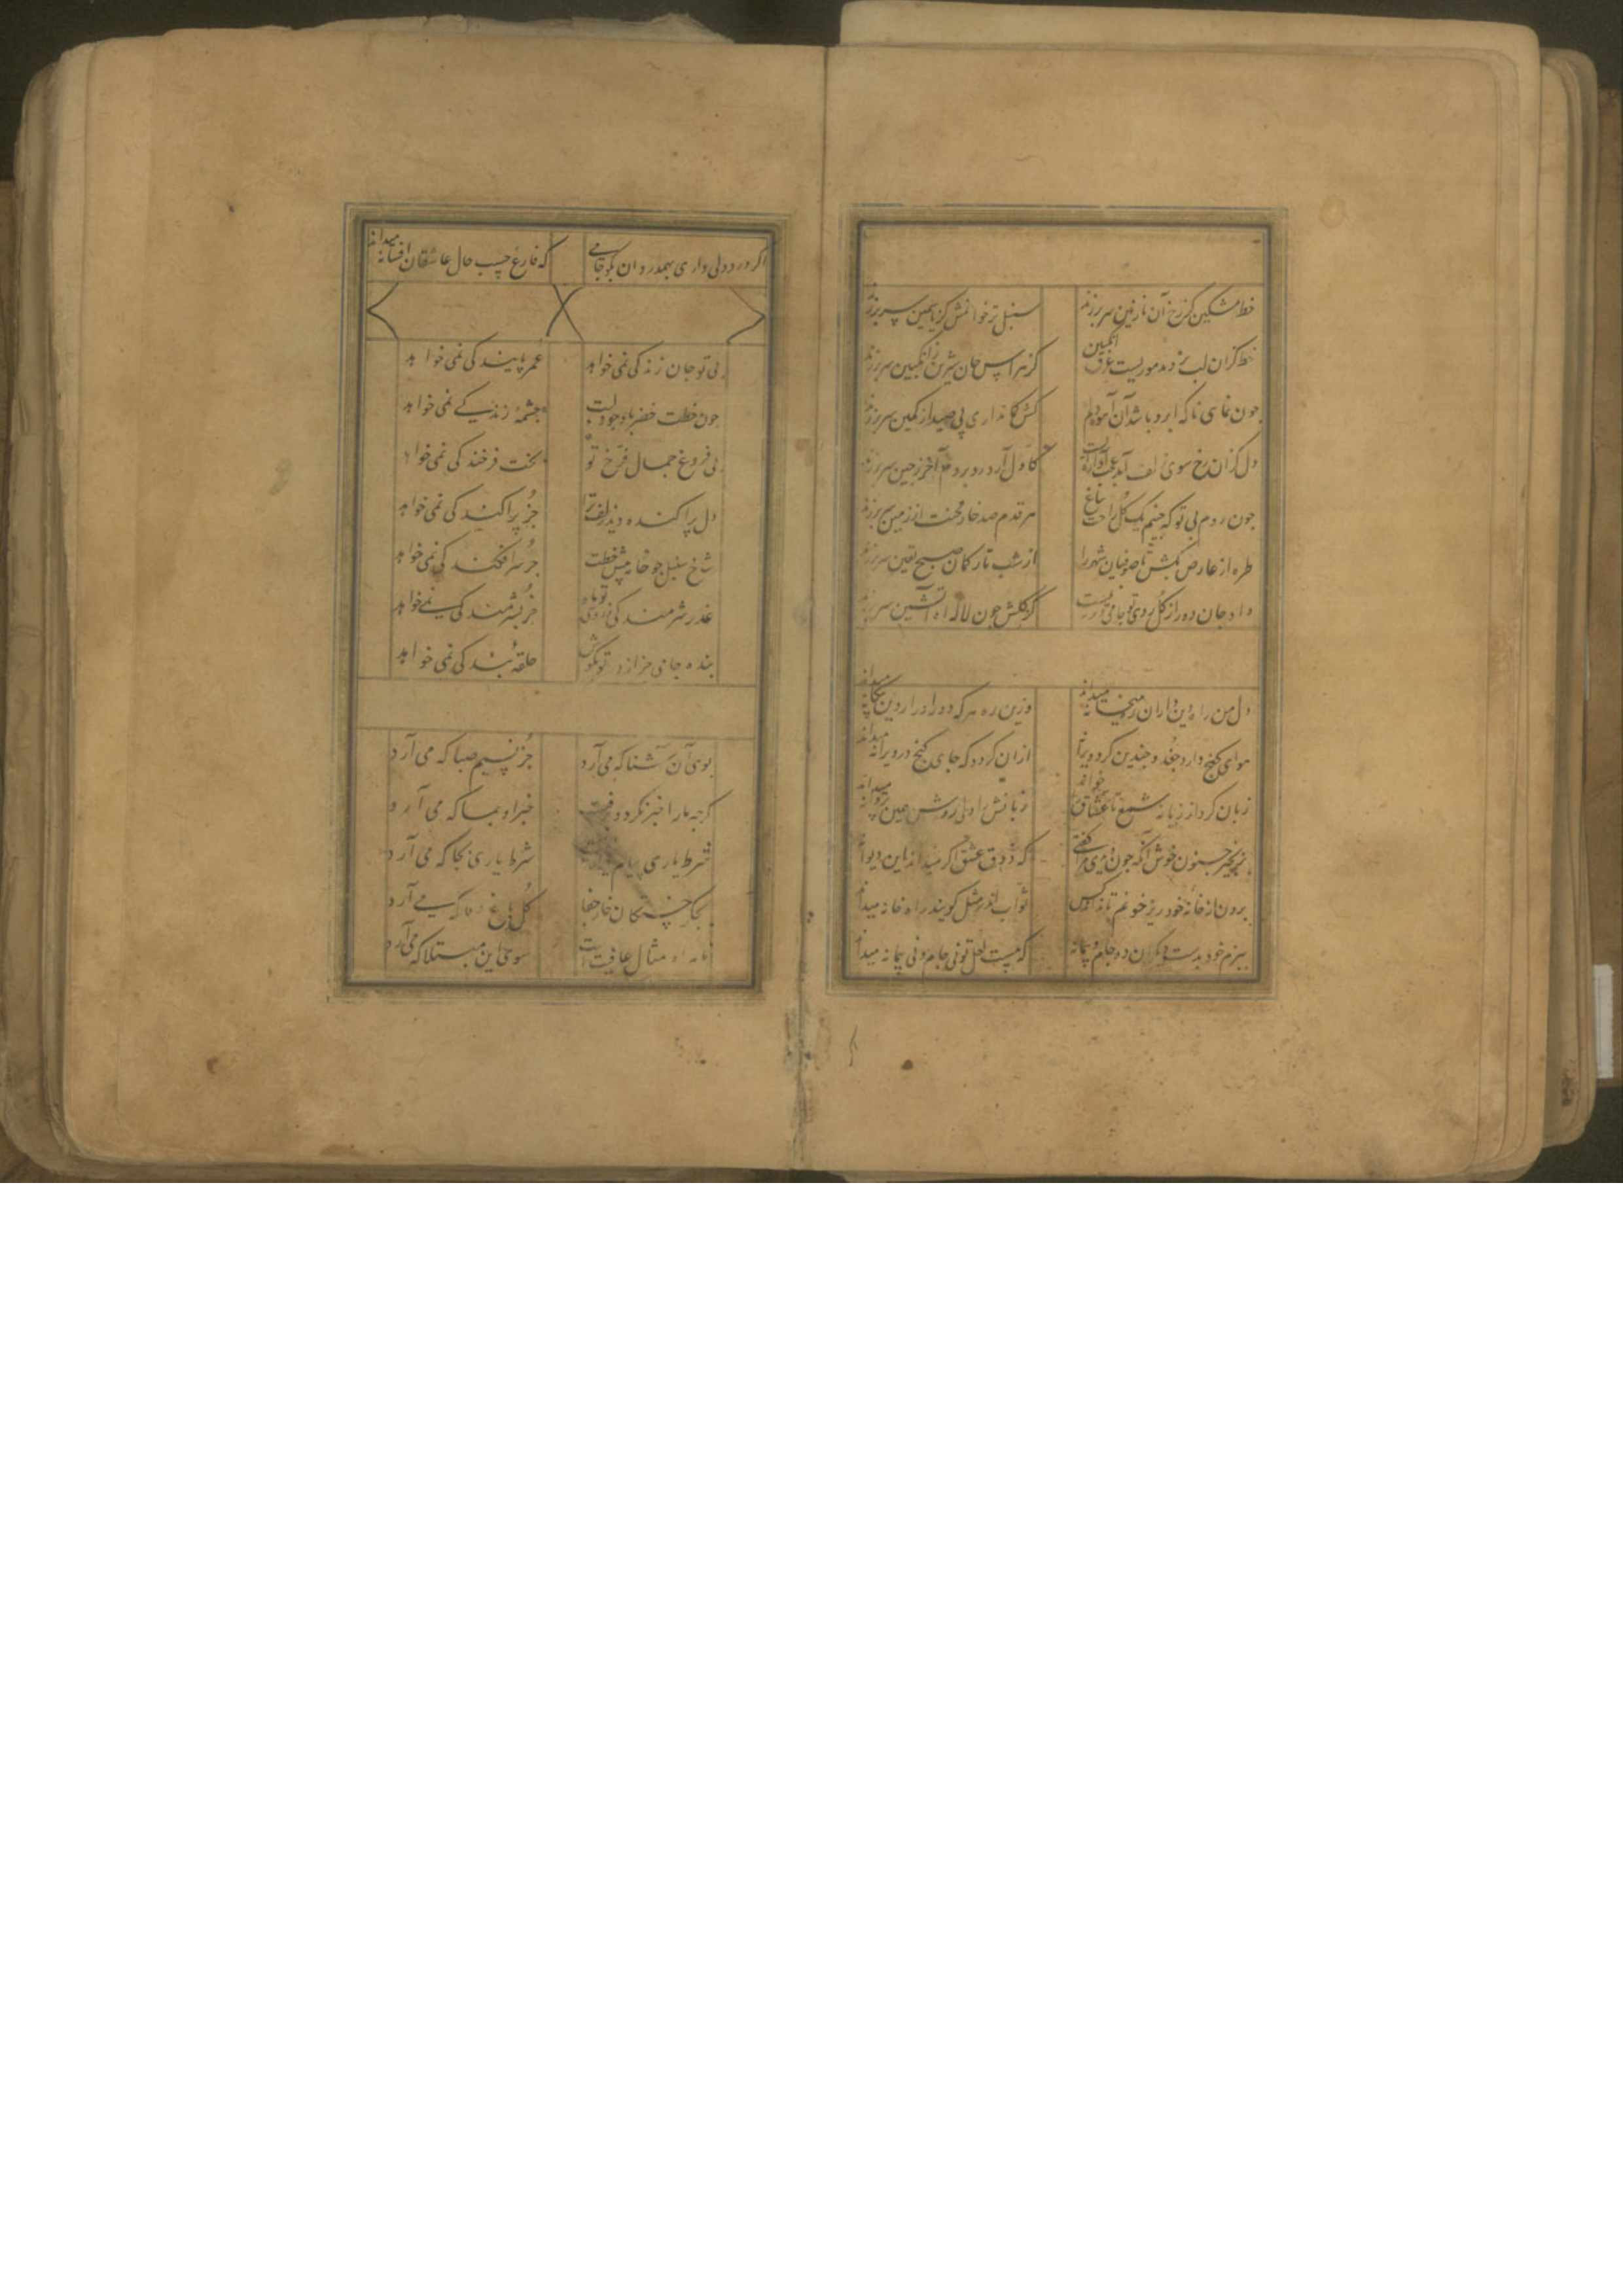 خط مشکین کز رخ آن نازنین سر برزند سنبل تر خوانمش کز یاسمین سر برزند
خط کزان لب بر دمد موریست غرق انگبین کز هراس جان شیرین ز انگبین سر برزند
چون نمایی ناکه ابرو باشد آن آشوب دلم کش کمانداری پی صید از کمین سر برزند
دل کزان رخ سوی زلف آمد آواره کاول آرد رو بروم آخر ز چین سر برزند
چون روم بی تو که چینم یک گل راحت ز باغ هر قدم صد خار محنت از زمین سر برزند
طره از عارض بکش تا صوفیان شهر را از شب تار کمان صبح یقین سر برزند
داد جان دور از گل روی تو جامی دور نیست کز گلش چون لاله آه آتشین سر برزند
دل من راه دین داران ره میخانه میداند وزین ره هر که دور او را ز دین بیگانه میداند
هوای گنج دارد جغد و چندین گرد ویرانه ازان گردد که جای گنج در ویرانه میداند
زبان کرد از زبانه شمع تا عشاق را خواند زبانش را ولی روشن همین پروانه میداند
بزنجیر جنون خوش آنکه چون دیدی مرا گفتی که ذوق عشق اگر میداند این دیوانه میداند
برون از خانهٔ خود ریز خونم تا نداند کس ثواب اندر مثل گویند راه خانه میداند
ببزم خود بدست دیگران ده جام و پیمانه که مست لعل تو نی جام و نی پیمانه میداند
اگر درد دلی داری بهمدردان بگو جامی که فارغ چسب حال عاشقان افسانه میداند
بی تو جان زندگی نمی خواهد عمر پایندگی نمی خواهد
چون خطت خضر با وجود لبت چشمهٔ زندگی نمی خواهد
بی فروغ جمال فرخ تو بخت فرخندگی نمی خواهد
دل پراکنده دید زلف ترا جز پراکندگی نمی خواهد
شاخ سنبل چو خامه پیش خطت جز سرافکندگی نمی خواهد
عذر شرمندگی ز روی تو ماه جز بشرمندگی نمی خواهد
بنده جامی جز از در تو بگوش حلقهٔ بندگی نمی خواهد
بوی آن آشنا که می آرد جز نسیم صبا که می آرد
گرچه ما را خبر نکرد و برفت خبر او بما که می آرد
شرط یاری پیام شرط یاری بجا که می آرد
بجگر خستگان خار جفا گل باغ وفا که می آرد
نامهٔ او مثال عافیت است سوی این مبتلا که می آرد